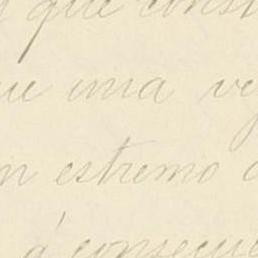 que cons
ue una ve
n estremo
á consecue